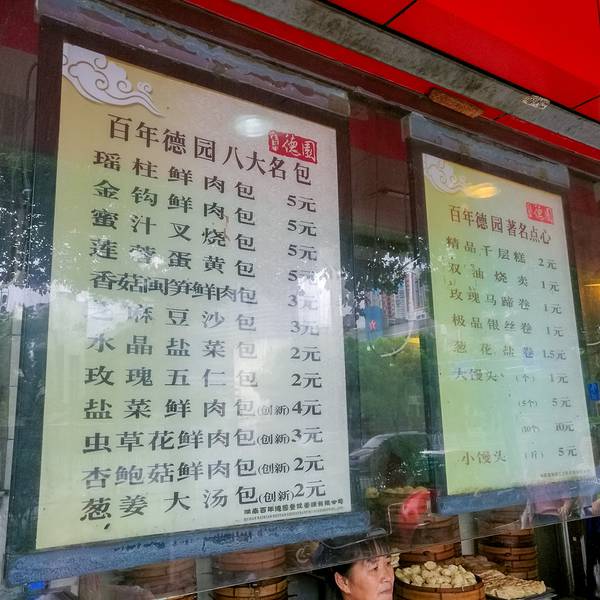 百年 德園
百年德园八大名包
瑶柱鲜肉包 5元
金钩鲜肉包 5元
蜜汁叉烧包 5元
莲蓉蛋黄包 5元
香菇闽笋鲜肉包 3元
芝麻豆沙包 3元
水晶盐菜包 2元
玫瑰五仁包 2元
盐菜鲜肉包(创新) 4元
虫草花鲜肉包(创新) 3元
杏鲍菇鲜肉包(创新) 2元
葱姜大汤包(创新) 2元
德園
百年德园著名点心
精品千层糕 2元
双油烧卖 1元
玫瑰马蹄卷 1元
极品银丝卷 1元
葱花盐卷 1.5元
大馒头 (个) 1元
(5个) 5元
(10个) 10元
小馒头 (斤) 5元